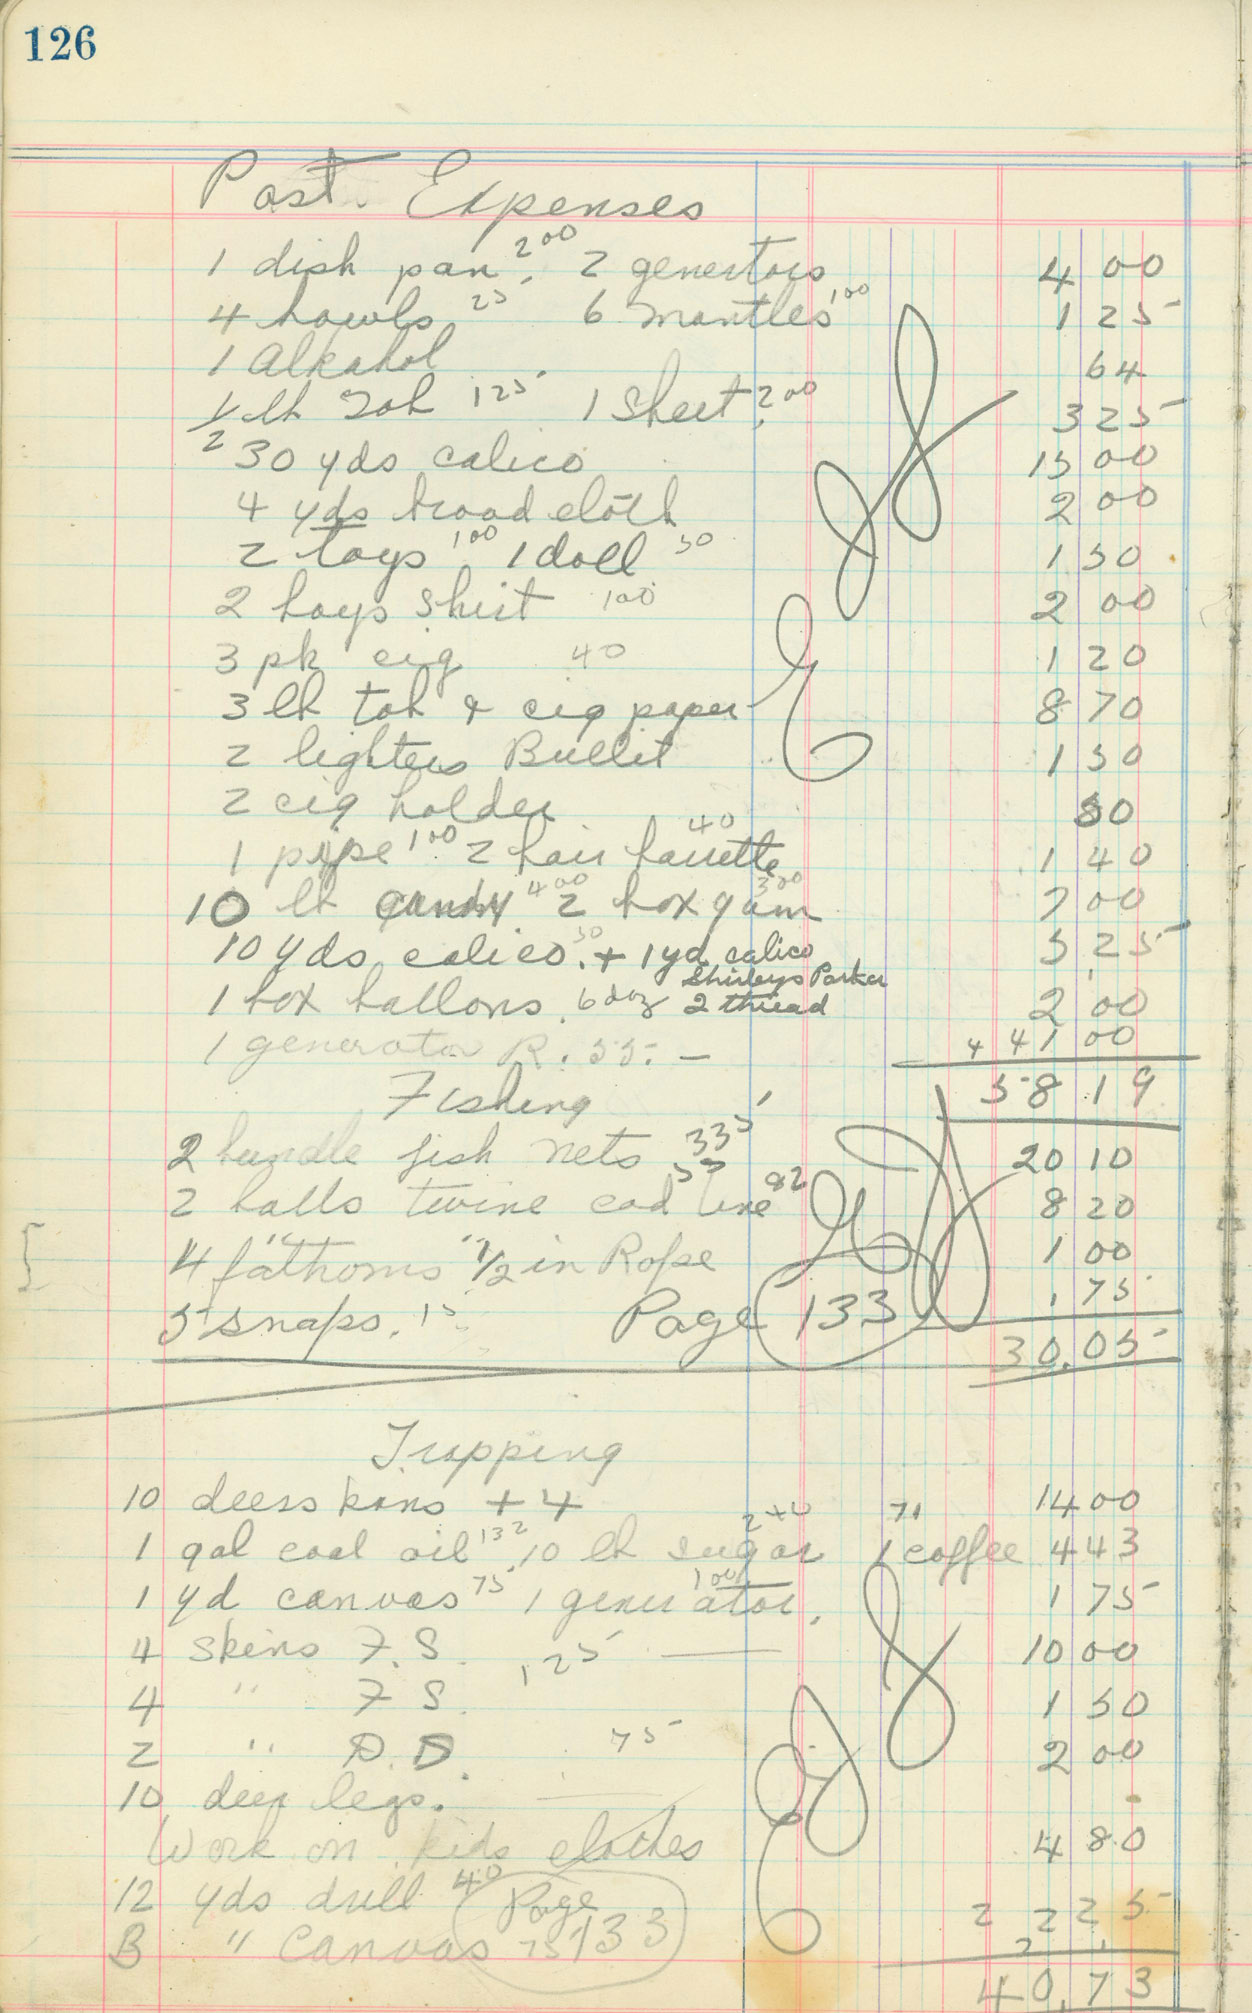 126
Post. Expenses
1 dish pan. 2 00 2 genertors 4 00
4 bowls 25 6 mantles 1 00 1 25
1 Alkahol 64
1/2 lb Tob 1 25 1 Sheet. 2 00 3 25
30 yds calico 15 00
4 yds broad cloth 2 00
2 toys 1 00 1 doll 50 1 50
2 boys shirt 1 00 2 00
3 pk cig 40 1 20
3 lb tob & cig paper 8 70
2 lighters Bullit 1 50
2 cig holder 80
1 pipe 1 00 2 hair barrette 40 1 40
10 lb candy 4 00 2 box gum 3 00 7 00
10 yds calico. 50 + 1 yd calico 5 25
Shirleys Parka
1 box ballons. 6 doz 2 thread 2 00
1 generator R. 55. — 4 41 00
58 19
Fishing
2 bundle fish nets 335 20 10
2 balls twine cod line 82 8 20
4 fathoms 1/2 in Rope 1 00
5 snaps. 15 Page 133 75
30.05
Trapping
10 deerskins + 4 14 00
1 gal coal oil 132 10 lb sugar 240 1 coffee 71 4 43
1 yd canvas 75 1 generator. 100 1 75
4 skins F. S. 1 25 10 00
4 " F S. 1 50
2 " D. D. 75 2 00
10 deer legs.
Work on kids clothes 4 80
12 yds drill 40 Page 2 2 25
B " Canvas 75 133
40.73